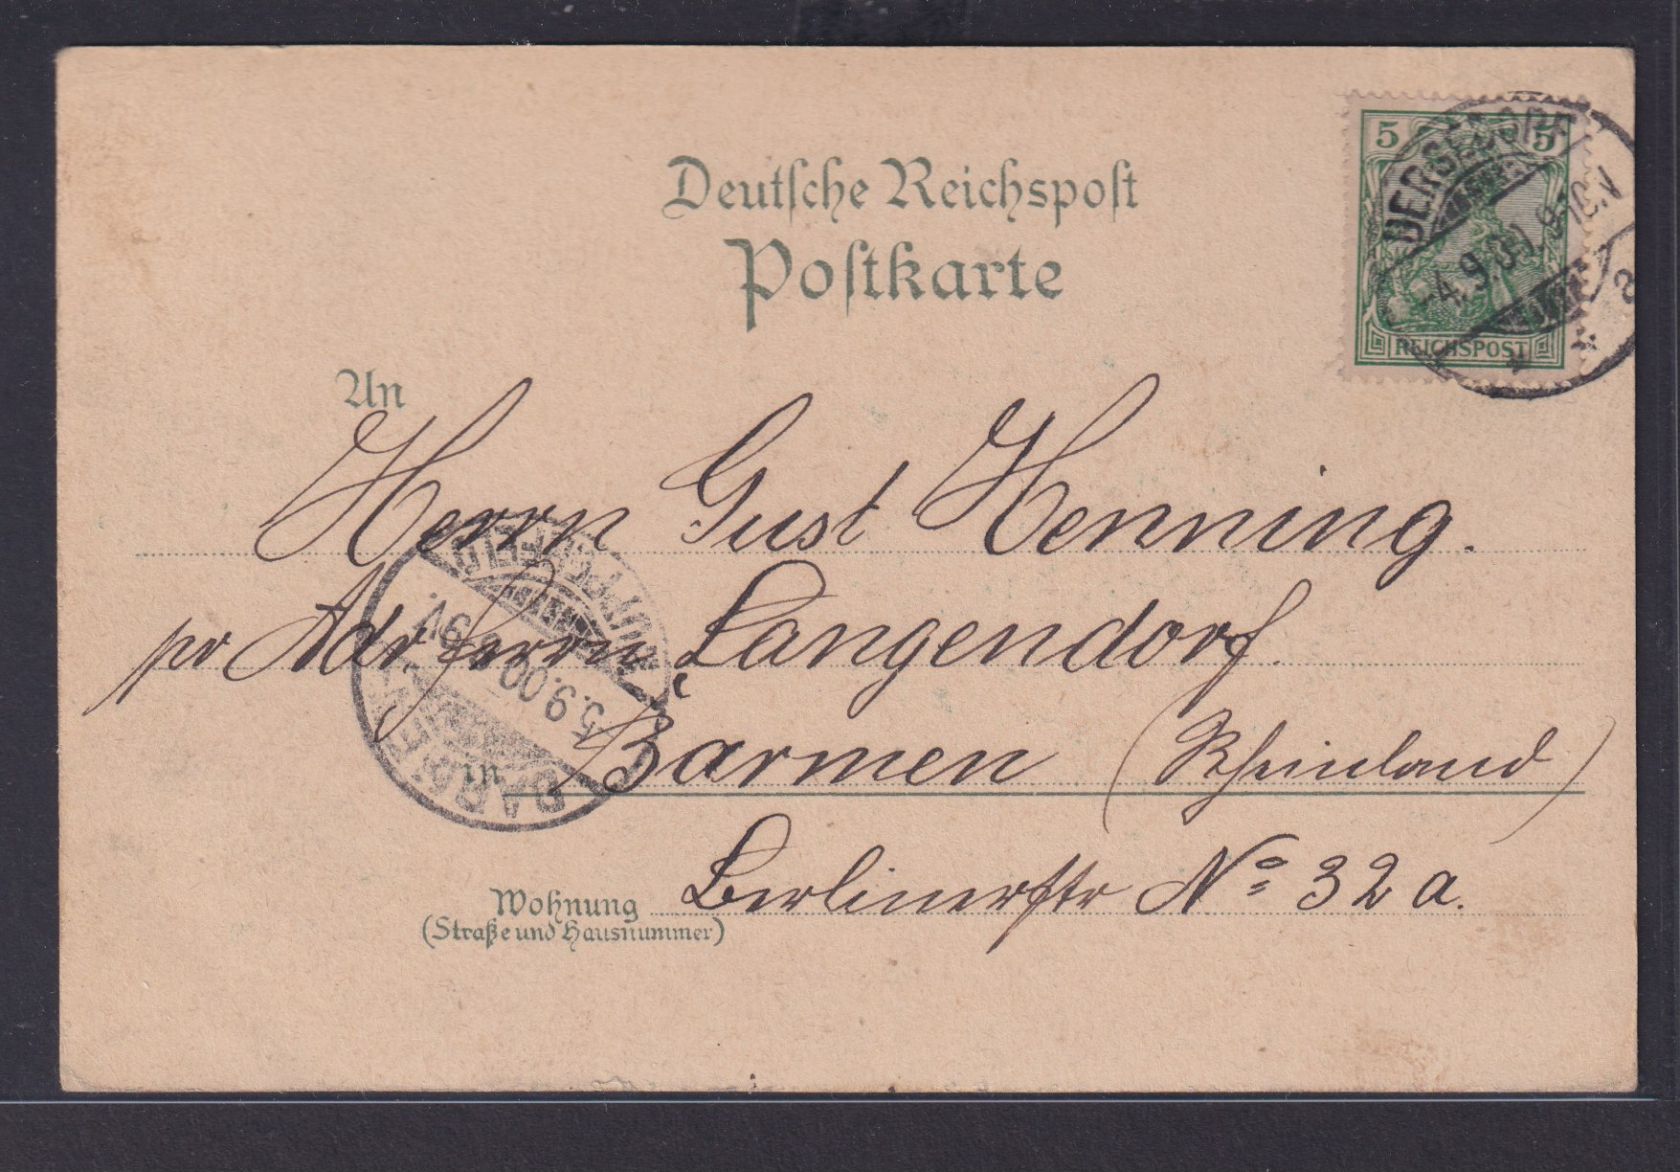 Deutsche Reichspost
Postkarte
5 5
REICHSPOST
-4.9.00. 9-10.V
a
An
Herrn Gust Henning.
pr Adr Herrn Langendorf.
in Barmen (Rheinland)
5.9.00. 8-9V.
BARMEN
Wohnung Berlinerstr No 32 a.
(Straße und Hausnummer)